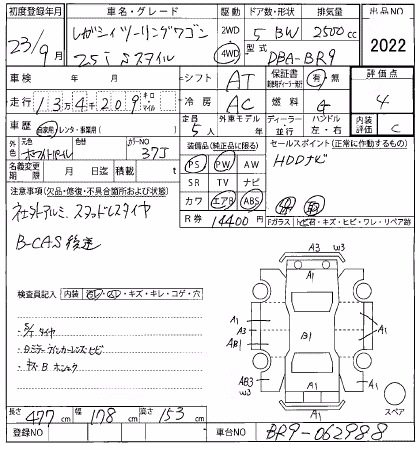 初度登録年月 車名・グレード 駆動 ドア数・形状 排気量 出品NO
23/9月 レガシイツーリングワゴン 2WD 5 BW 2500cc 2022
2.5i Sスタイル 4WD 型式 DBA-BR9
車検 年 月 シフト AT 保証書 有・無 評価点
走行 13万4千209 キロ・マイル 冷房 AC 燃料 G 4
車歴 自家用・レンタ・事業用( ) 定員 5人 外車モデル 年 ディーラー 並行 ハンドル 左・右 内装評価 C
外色 元色 ホワイトパール カラーNO 37J 装備品(純正品に限る) セールスポイント(正常に作動するもの)
名義変更期限 月 日 積載 t PS PW AW HDDナビ
注意事項(欠品・修復・不具合箇所および状態) SR TV ナビ
社外アルミ、スタッドレスタイヤ カワ エアB ABS
B-CAS後送 R券 14400円 Fガラス トビ石・キズ・ヒビ・ワレ・リペア跡
検査員記入 内装 ・キズ・キレ・コゲ・穴
A3 W3
A1
S/Tタイヤ
Bミラーウィンカーレンズヒビ
A1 A3 AB1 B1 A1 A1
AB3 W3 A1
A1
スペア
長さ 477cm 幅 178cm 高さ 153cm
登録NO 車台NO BR9-062988